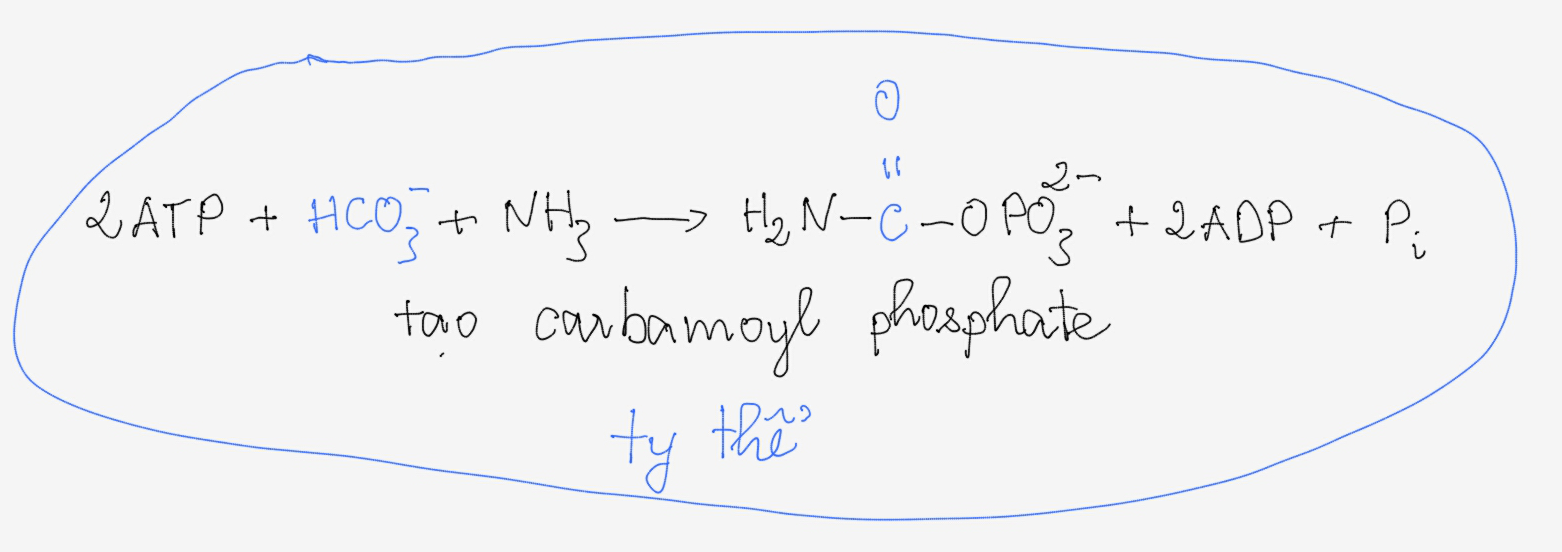 O
"
2ATP + HCO₃⁻ + NH₃ ⟶ H₂N–C–OPO₃²⁻ + 2ADP + Pᵢ
tạo carbamoyl phosphate
ty thể